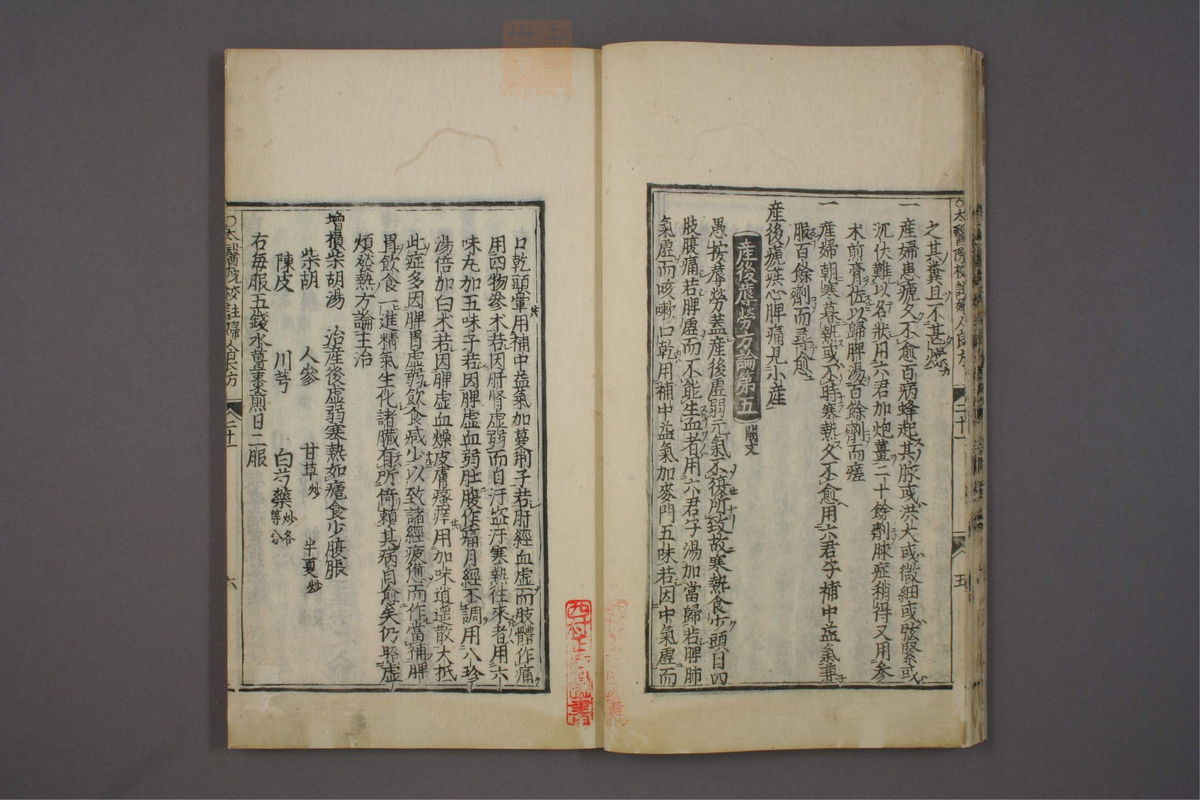 之其糞且不甚燃
一 産婦患瘧久不愈百病蜂起其脉或洪大或微細或弦緊或
沉伏難以名狀用六君加炮薑二十餘劑脉症稍得又用參
术煎膏佐以歸脾湯百餘劑而瘥
一 産婦朝寒暮熱或不時寒熱久不愈用六君子補中益氣兼
服百餘劑而尋愈
産後瘧疾心脾痛見小産
産後蓐勞方論第五 闕文
愚按蓐勞蓋産後虚弱元氣不復所致故寒熱食少頭目四
肢腹痛若脾虚而不能生血者用六君子湯加當歸若脾肺
氣虚而咳嗽口乾用補中益氣加麥門五味若因中氣虚而
口乾頭暈用補中益氣加蔓荆子若肝經血虚而肢體作痛
用四物參术若因肝腎虚弱而自汗盗汗寒熱徃來者用六
味丸加五味子若因脾虚血弱肚腹作痛月經不調用八珍
湯倍加白术若因脾虚血燥皮膚瘙痒用加味逍遥散大抵
此症多因脾胃虚弱飲食減少以致諸經疲憊而作當補脾
胃飲食一進精氣生化諸臟有所倚賴其病自愈矣仍照虚
煩發熱方論主治
增損柴胡湯 治産後虚弱寒熱如瘧食少腹脹
柴胡 人參 甘草炒 半夏炒
陳皮 川芎 白芍藥炒各等分
右每服五錢水薑棗煎日二服